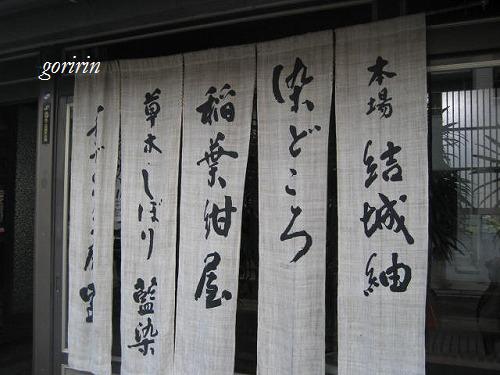 本場 結城紬
染どころ
稲葉紺屋
草木・しぼり 藍染
goririn